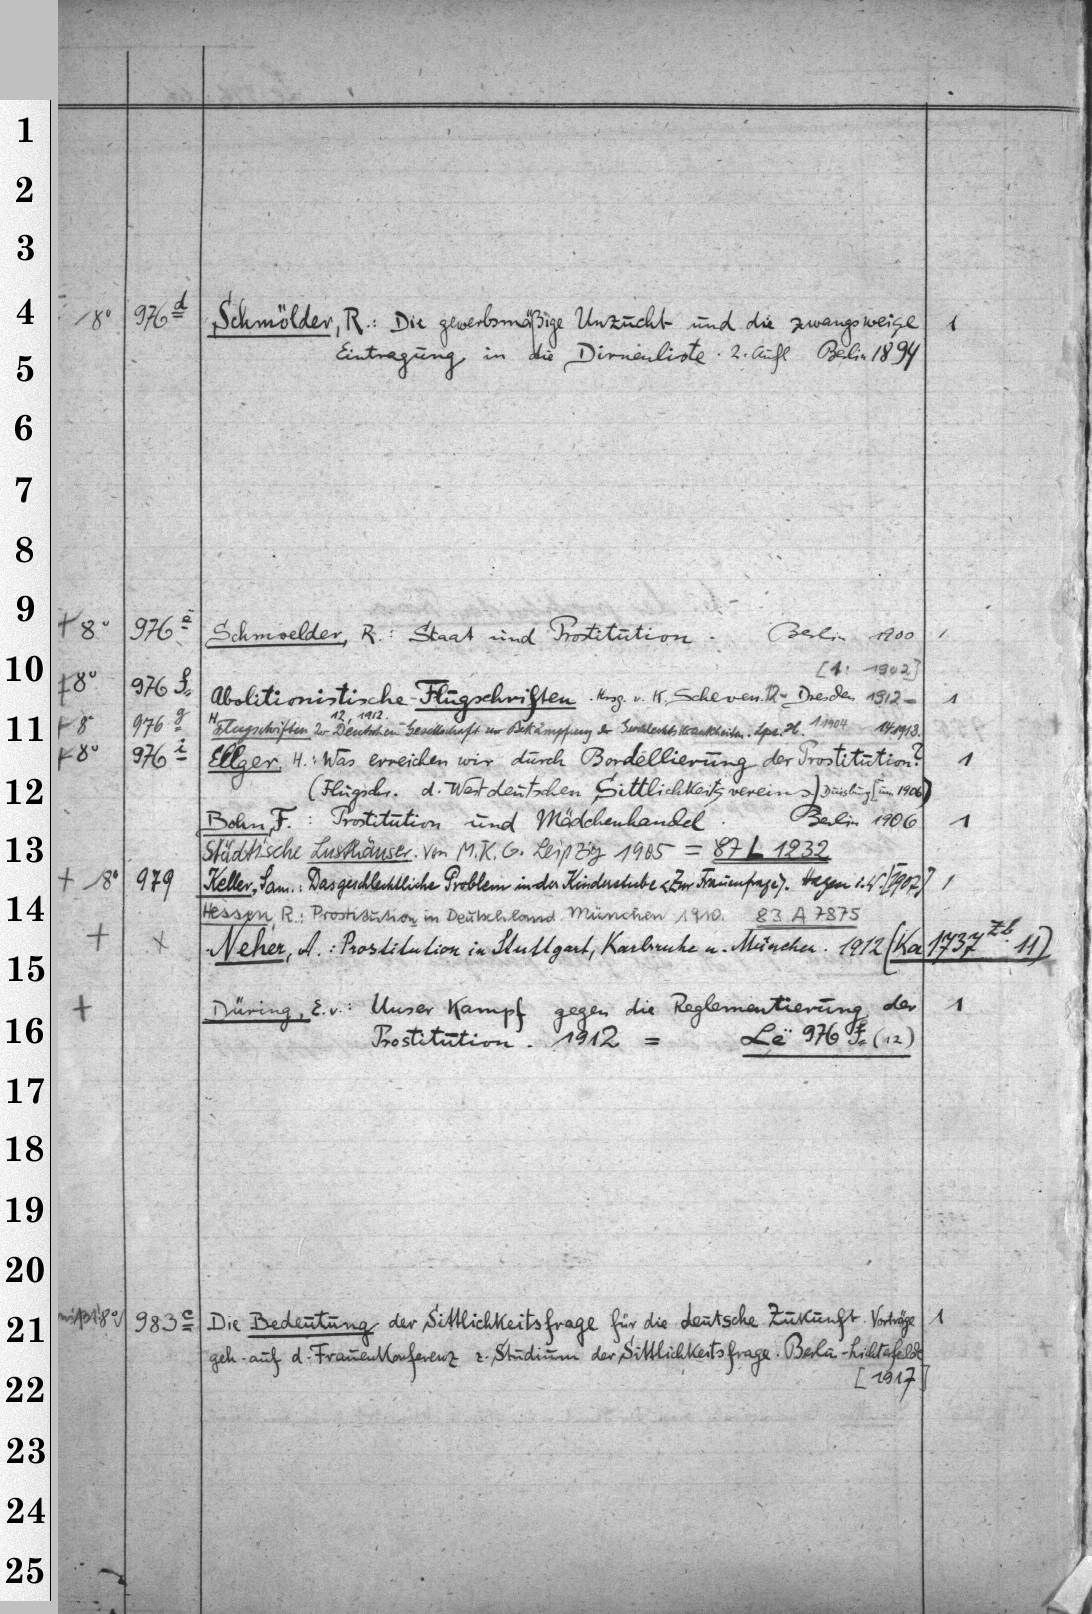 1
2
3
4 8° 976 d Schmölder, R.: Die gewerbsmäßige Unzucht und die zwangsweise 1
Eintragung in die Dirnenliste. 2. Aufl Berlin 1894
5
6
7
8
9
+ 8° 976 e Schmoelder, R.: Staat und Prostitution. Berlin 1900 1
10 [1. 1902]
+ 8° 976 f Abolitionistische Flugschriften. Hrsg. v. K. Scheven. 12 Dresden 1912 - 1
12, 1912.
11 + 8° 976 g H Flugschriften Deutschen Gesellschaft zur Bekämpfung der Geschlechtskrankheiten. Lpz. H. 1.1904 14.1913.
+ 8° 976 i Ellger, H.: Was erreichen wir durch Bordellierung der Prostitution? 1
12 (Flugschr. d. Westdeutschen Sittlichkeitsvereins) Duisburg [um 1906]
Bohn, F.: Prostitution und Mädchenhandel. Berlin 1906 1
13 Städtische Lusthäuser. Von M. K. G. Leipzig 1905 = 87 L 1232
+ 8° 979 Keller, Sam.: Das geschlechtliche Problem in der Kinderstube <Zur Frauenfrage>. Hagen i. W. [1907] 1
14 Hessen, R.: Prostitution in Deutschland. München 1910. 83 A 7875
+ x Neher, A.: Prostitution in Stuttgart, Karlsruhe u. München. 1912 (Ka 1737 zb 11)
15
+ Düring, E. v.: Unser Kampf gegen die Reglementierung der 1
16 Prostitution. 1912 = Lë 976 f (12)
17
18
19
20
21 8° 983 c Die Bedeutung der Sittlichkeitsfrage für die deutsche Zukunft. Vorträge 1
geh. auf d. Frauenkonferenz z. Studium der Sittlichkeitsfrage. Berlin-Lichterfelde
22 [1917]
23
24
25